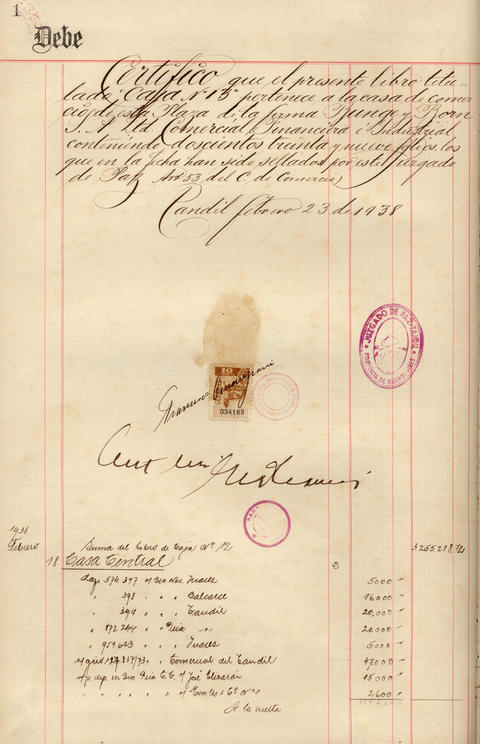 1
Debe
Certifico que el presente libro titu-
lado "Caja Nº 13" pertenece a la casa de comer-
cio de esta Plaza de la firma Bunge y Born
S. A. Ltd Comercial Financiera e Industrial
conteniendo doscientos treinta y nueve folios los
que en la fecha han sido sellados por este Juzgado
de Paz Art 53 del C. de Comercio)
Tandil febrero 23 de 1938
JUZGADO DE PAZ TANDIL
PROVINCIA DE BUENOS AIRES
10
034185
1938
Febrero Suma del Libro de Caja Nº 12
18 Casa Central 2
576.397 Bco Nac Juarez 5000 "
" 398 " " Balcarce 16.000 "
" 399 " " Tandil 20.000 "
" 872244 " " Pcia " 20.000 "
" 959623 " " " Juarez 5000 "
Comercial del Tandil 47.000 "
dep. en Bco Pcia José 15.000 "
" " " " 2600 "
A la vuelta